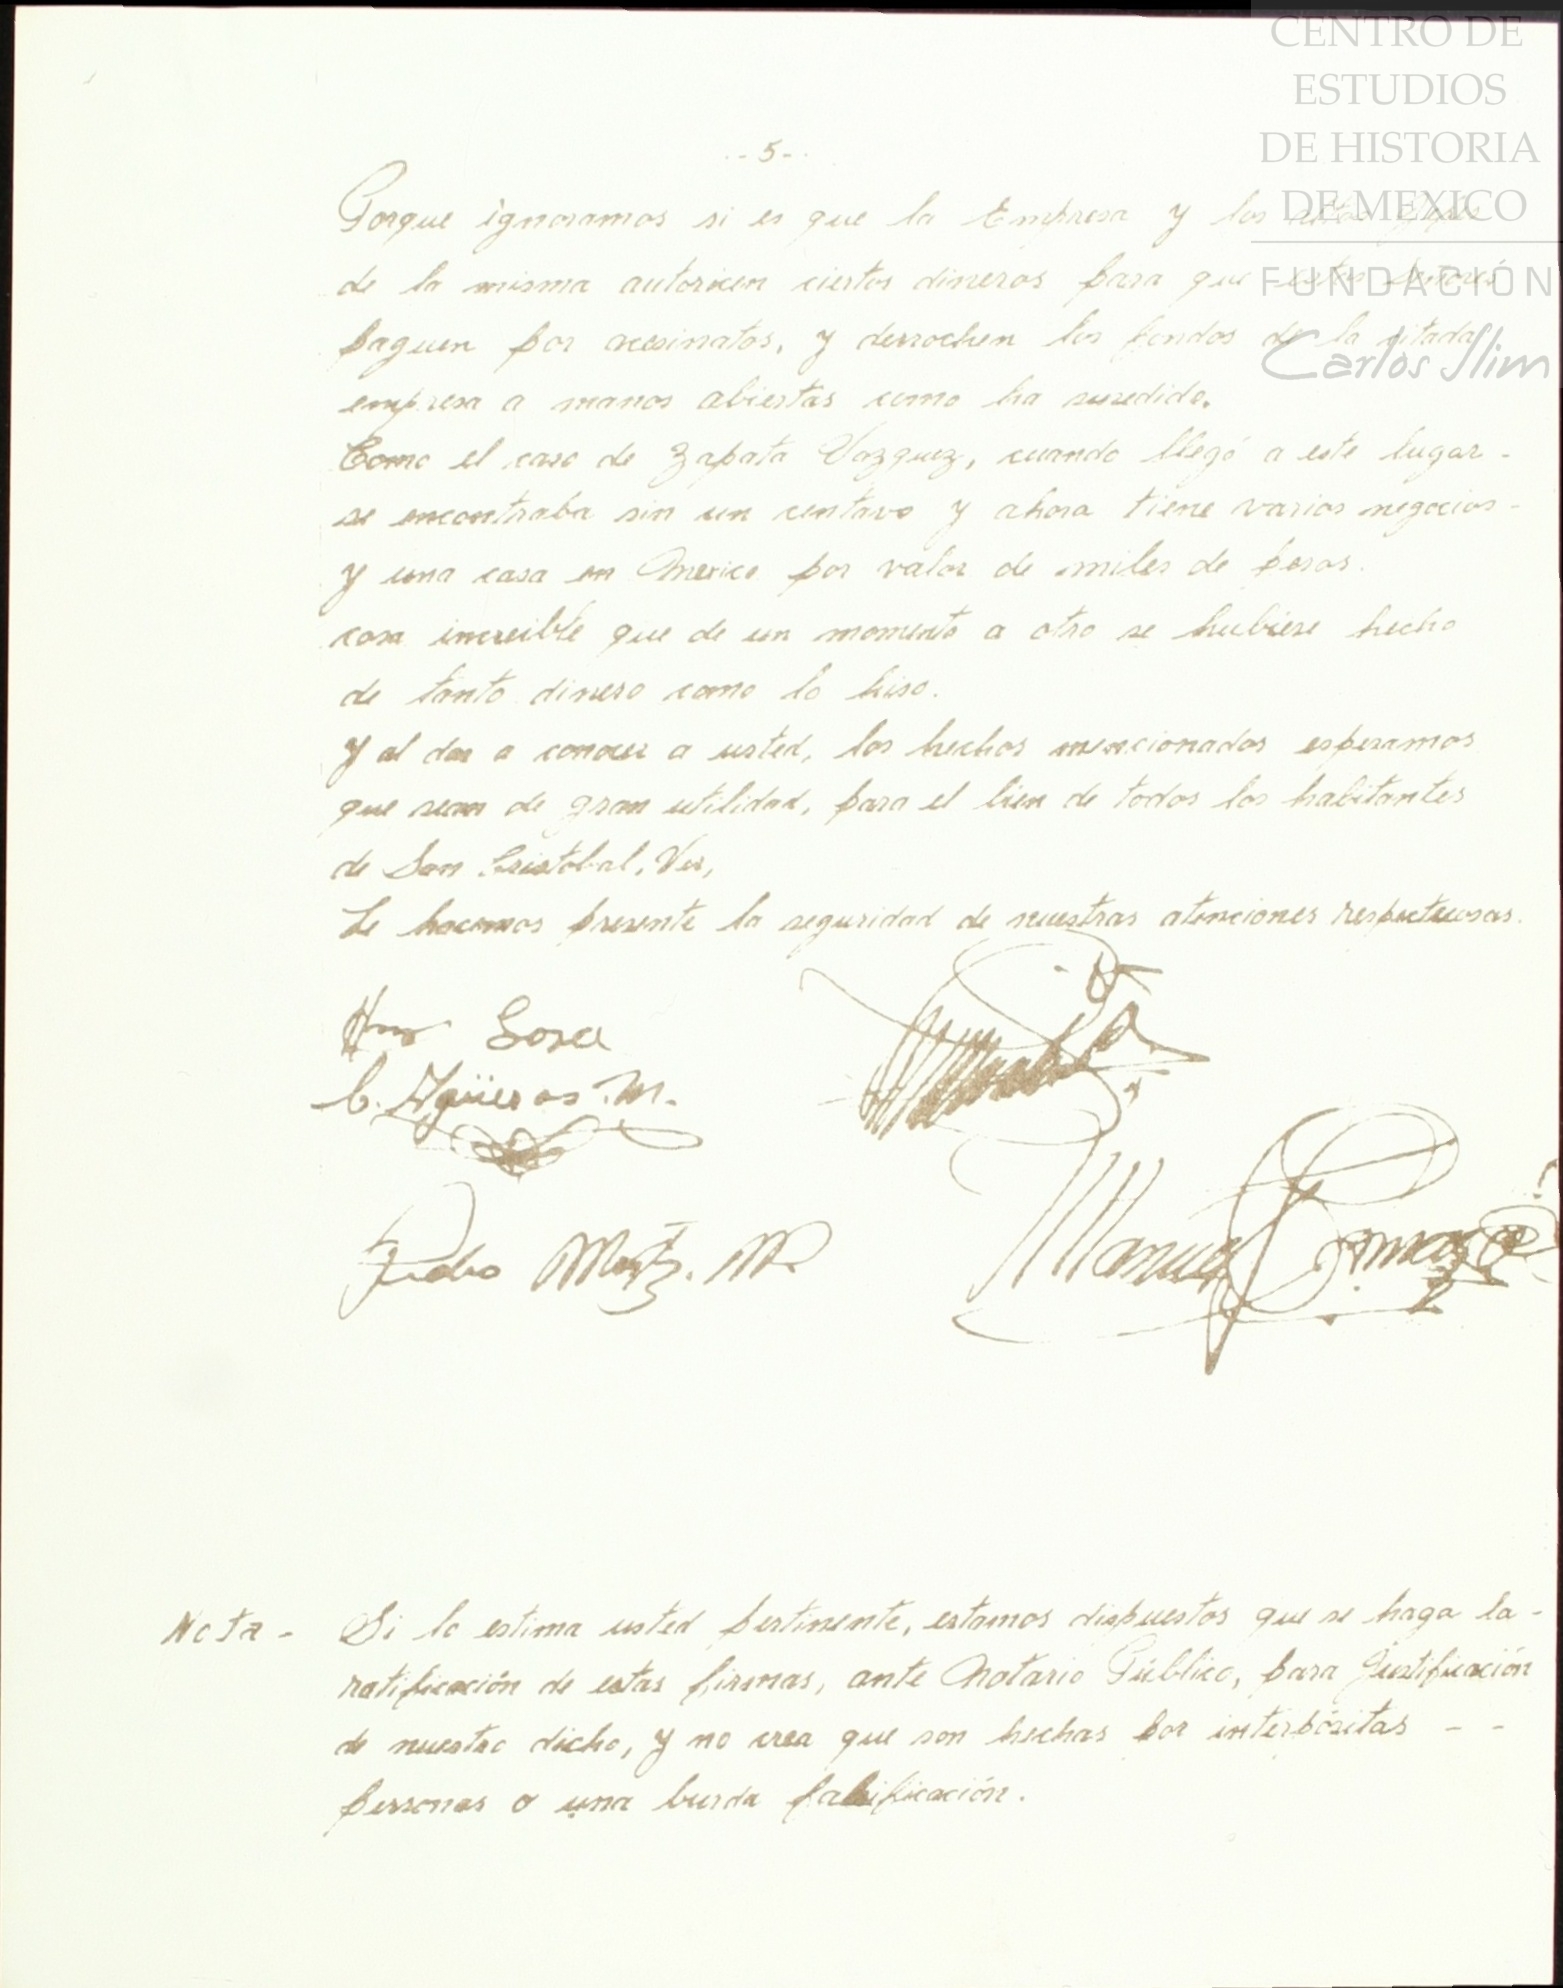 CENTRO DE
ESTUDIOS
DE HISTORIA
DE MEXICO
FUNDACIÓN
Carlos Slim
--5--
Porque ignoramos si es que la Empresa y los altos Jefes
de la misma autoricen ciertos dineros para que estos Señores
paguen por acesinatos, y derrochen los fondos de la citada
empresa a manos abiertas como ha sucedido.
Como el caso de Zapata Vazquez, cuando llegó a este lugar -
se encontraba sin un centavo y ahora tiene varios negocios -
y una casa en Mexico por valor de miles de pesos.
cosa increible que de un momento a otro se hubiese hecho
de tanto dinero como lo hiso.
Y al dar a conocer a usted, los hechos mencionados esperamos
que sean de gran utilidad, para el bien de todos los habitantes
de San Cristobal, Ver,
Le hacemos presente la seguridad de nuestras atenciones respectuosas.
Sosa
C. Agüeros M.
Pedro Mtz. M.
Manuel
Nota - Si lo estima usted pertinente, estamos dispuestos que se haga la -
ratificación de estas firmas, ante Notario Público, para Justificación
de nuestro dicho, y no crea que son hechas por interpósitas - -
personas o una burda falsificación.